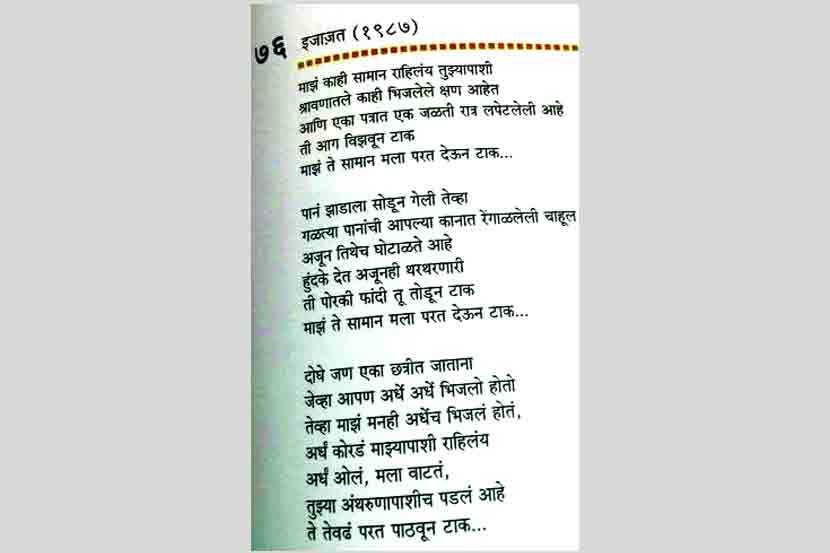 ७६ इजाज़त (१९८७)
माझं काही सामान राहिलंय तुझ्यापाशी
श्रावणातले काही भिजलेले क्षण आहेत
आणि एका पत्रात एक जळती रात्र लपेटलेली आहे
ती आग विझवून टाक
माझं ते सामान मला परत देऊन टाक...
पानं झाडाला सोडून गेली तेव्हा
गळत्या पानांची आपल्या कानात रेंगाळलेली चाहूल
अजून तिथेच घोटाळते आहे
हुंदके देत अजूनही थरथरणारी
ती पोरकी फांदी तू तोडून टाक
माझं ते सामान मला परत देऊन टाक...
दोघे जण एका छत्रीत जाताना
जेव्हा आपण अर्धे अर्धे भिजलो होतो
तेव्हा माझं मनही अर्धेच भिजलं होतं,
अर्धं कोरडं माझ्यापाशी राहिलंय
अर्धं ओलं, मला वाटतं,
तुझ्या अंथरुणापाशीच पडलं आहे
ते तेवढं परत पाठवून टाक...